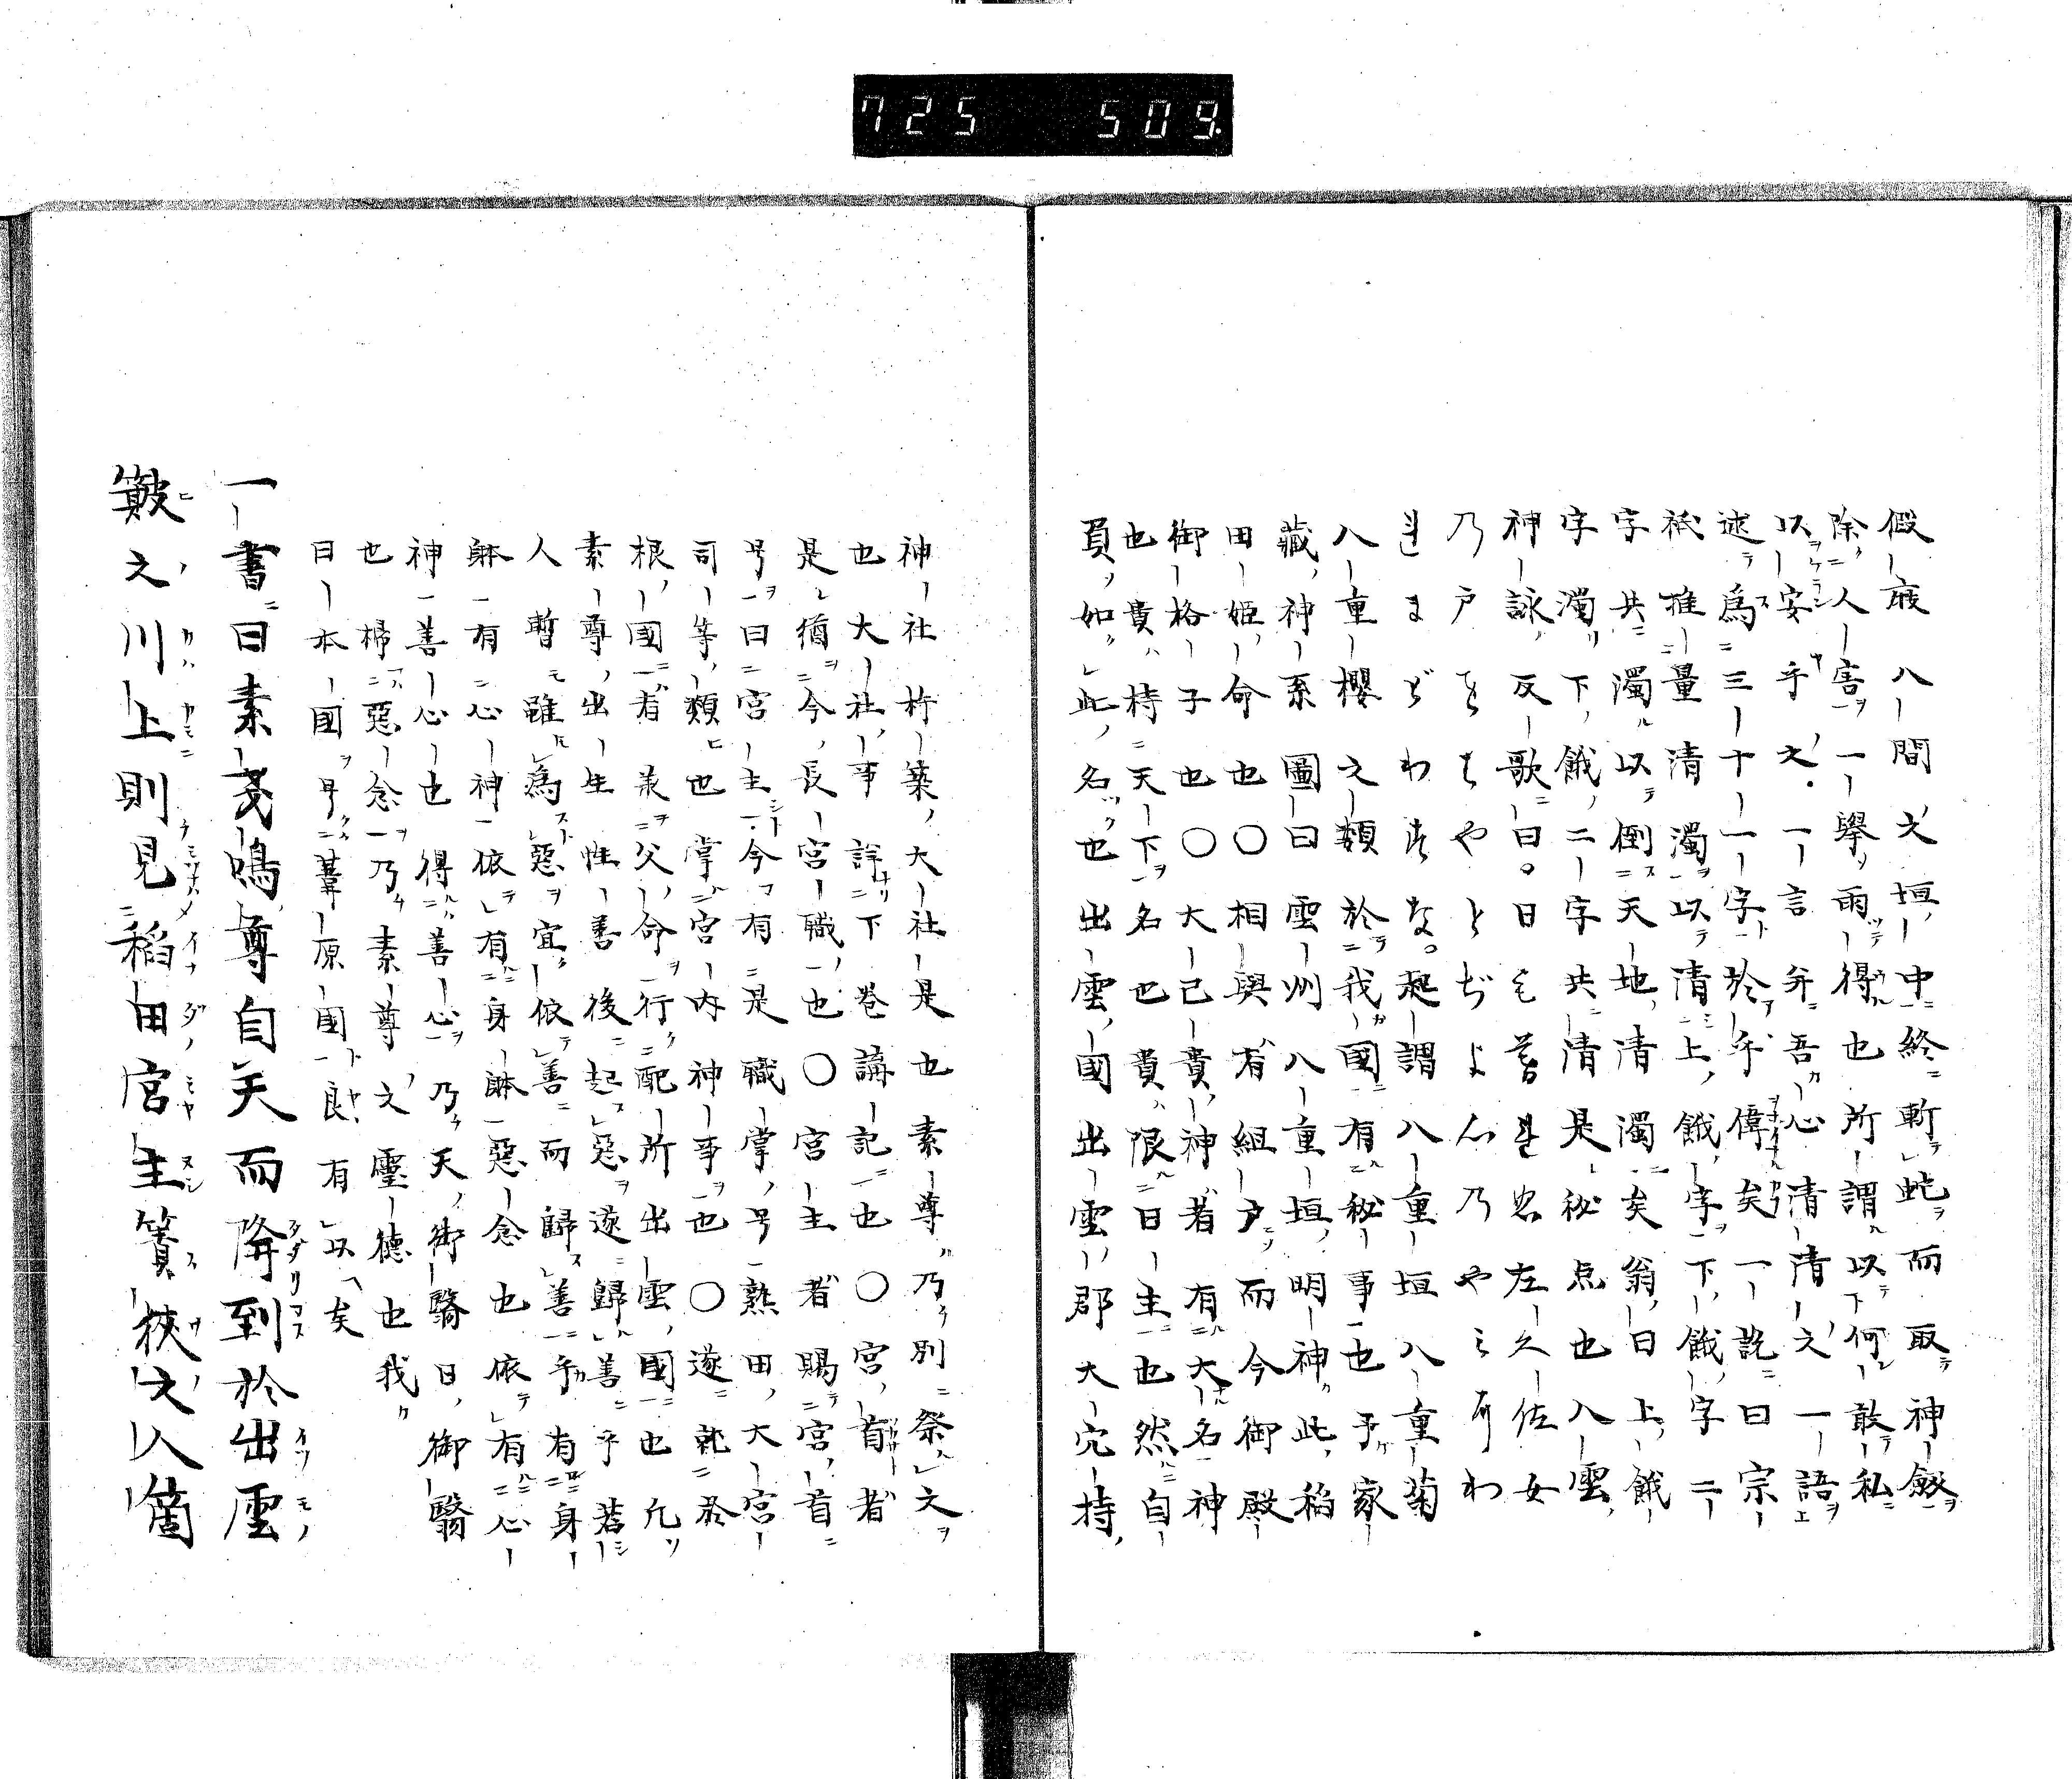 725 509.
假庪八間文垣中終斬蛇而取神劔
除人害一擧雨得也所謂以何敢私
以安乎文一言弁吾心清清文一語
逑爲三十一字於乎偉矣一説曰宗
祇推量清濁以清上餓字下餓字二
字共濁以倒天地清濁矣翁曰上餓
字濁下餓二字共清是秘点也八雲
神詠反歌曰日
乃戸
起謂八重垣八重菊
八重櫻之類於我國有秘事也予家
藏神系圖曰雲州八重垣明神此稻
田姫命也〇相與有組戸而今御殿
御格子也〇大己貴神者有大名神
也貴持天下名也貴限日主也然自
負如此名也出雲國出雲郡大穴持
神社杵築大社是也素尊乃別祭文
也大社事詳下巻講記也〇宮首者
是猶今長宮職也〇宮主者賜宮首
号曰宮主今有是職掌号熱田大宮
司等類也掌宮内神事也〇遂就於
根國者素父命行配所出雲國也凢
素尊出生性善後起惡遂歸善乎若
人暫雖爲惡宜依善而歸善乎有身
躰有心神依有身躰惡念也依有心
神善心也得善心乃天御翳日御翳
也掃惡念乃素尊文靈德也我
日本國号葦原國良有以矣
一書曰素戔嗚尊自天而降到於出雲
簸之川上則見稻田宮主簀狹之八箇